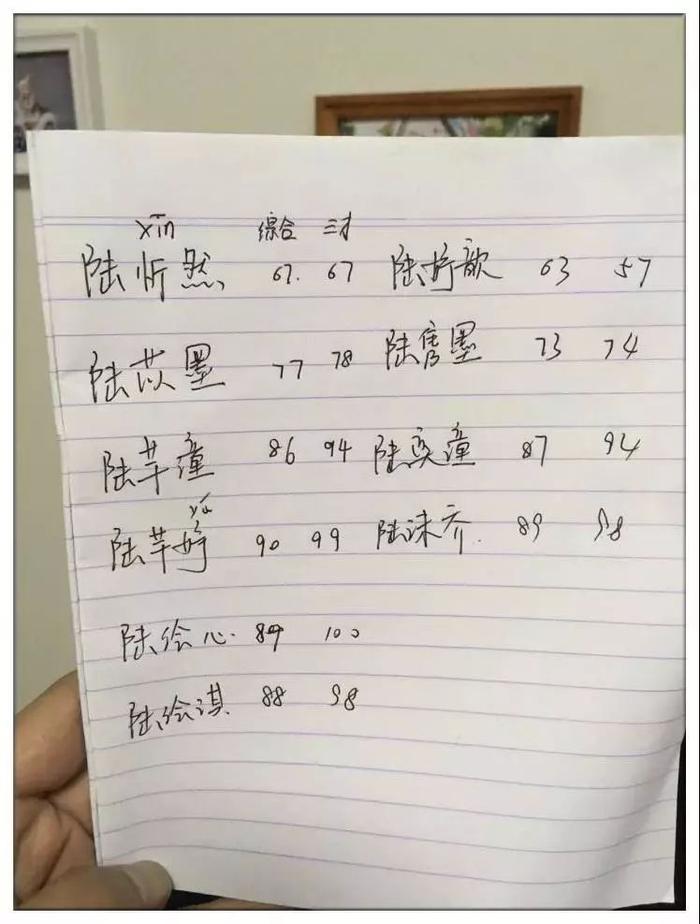 xīn 综合 三才
陆忻然 67. 67 陆婷歆 63 57
陆苡墨 77 78 陆隽墨 73 74
陆芊潼 86 94 陆奕潼 87 94
陆芊妤 90 99 陆沫乔. 89 98
陆绘心. 89 100
陆绘淇. 88 98